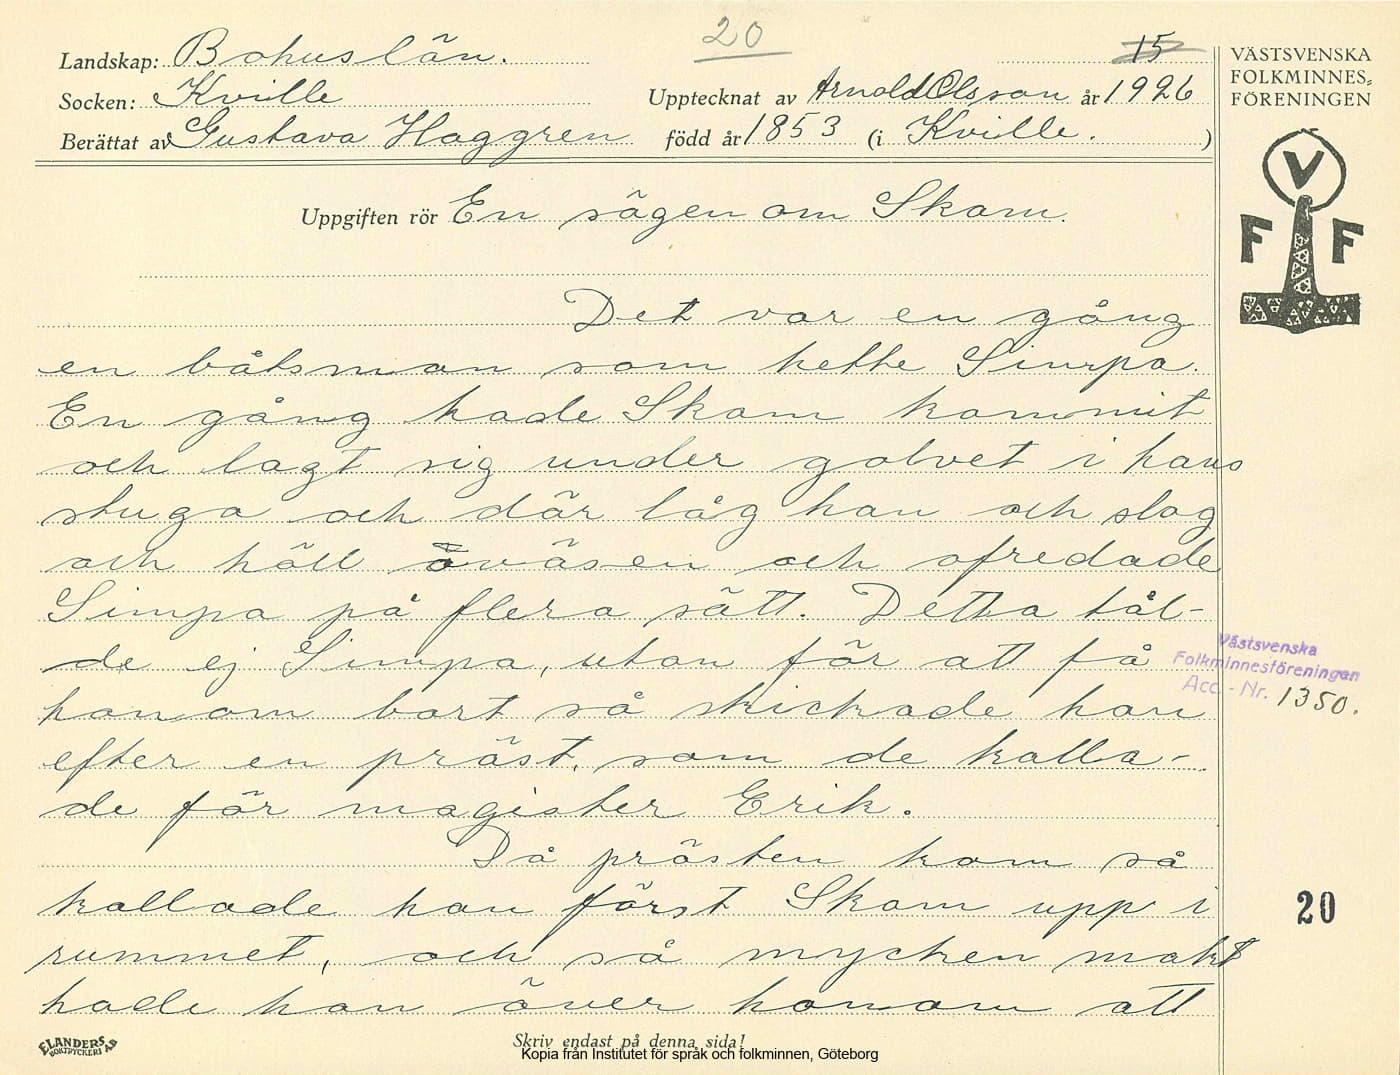 20
15
Landskap: Bohuslän.
Socken: Kville
Upptecknat av Arnold Olsson år 1926
Berättat av Gustava Haggren
född år 1853 (i Kville. )
VÄSTSVENSKA
FOLKMINNES=
FÖRENINGEN
V
F F
Uppgiften rör En sägen om Skam.
Det var en gång
en båtsman som hette Simpa.
En gång hade Skam kommit
och lagt sig under golvet i hans
stuga och där låg han och slog
och höll oväsen och ofredade
Simpa på flera sätt. Detta tål-
de ej Simpa, utan för att få
honom bort så skickade han
efter en präst, som de kalla-
de för magister Erik.
Då prästen kom så
kallade han först Skam upp i
rummet, och så mycken makt
hade han över honom att
Västsvenska
Folkminnesföreningen
Acc. - Nr. 1350.
20
ELANDERS
BOKTRYCKERI AB
Skriv endast på denna sida!
Kopia från Institutet för språk och folkminnen, Göteborg